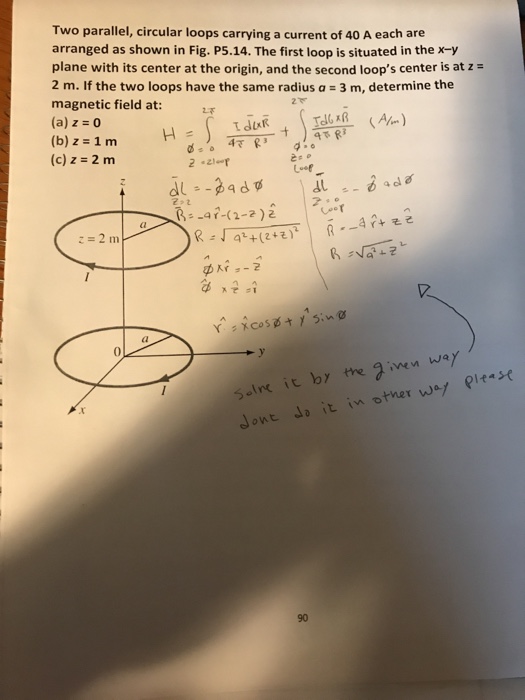 Two parallel, circular loops carrying a current of 40 A each are
arranged as shown in Fig. P5.14. The first loop is situated in the x–y
plane with its center at the origin, and the second loop's center is at z =
2 m. If the two loops have the same radius a = 3 m, determine the
magnetic field at:
(a) z = 0
(b) z = 1 m
(c) z = 2 m
H = ∫ (ϕ=0 to 2π, z=2 loop) I dl x R̄ / 4π R³ + ∫ (ϕ=0 to 2π, z=0 loop) I dl x R̄ / 4π R³ (A/m)
dl = -ϕ̂ a dϕ
z=2
R̄ = -a r̂ -(2-z) ẑ
R = √a²+(2+z)²
ϕ̂ x r̂ = -ẑ
ϕ̂ x ẑ = r̂
dl = -ϕ̂ a dϕ
z=0
loop
R̄ = -a r̂ + z ẑ
R = √a²+z²
r̂ = x̂ cosϕ + ŷ sinϕ
solve it by the given way
dont do it in other way please
z
a
z = 2 m
I
a
0
y
I
x
90